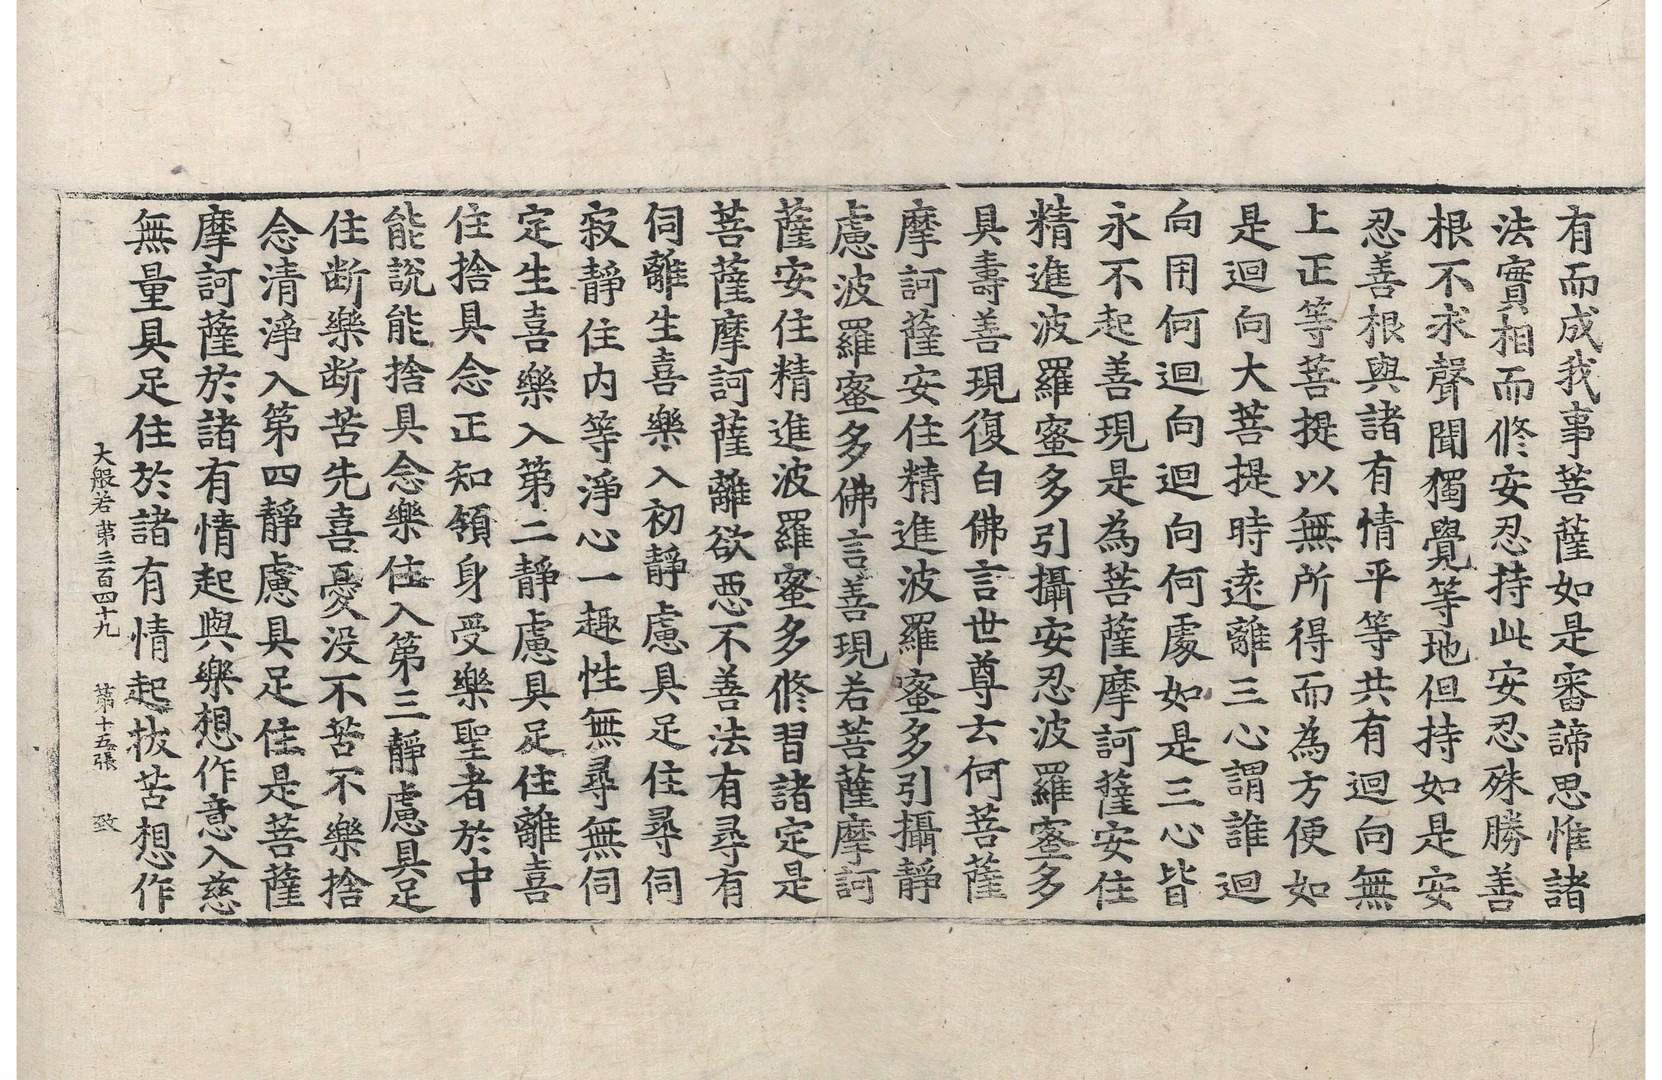 有而成我事菩薩如是審諦思惟諸
法實相而修安忍持此安忍殊勝善
根不求聲聞獨覺等地但持如是安
忍善根與諸有情平等共有迴向無
上正等菩提以無所得而為方便如
是迴向大菩提時遠離三心謂誰迴
向用何迴向迴向何處如是三心皆
永不起善現是為菩薩摩訶薩安住
精進波羅蜜多引攝安忍波羅蜜多
具壽善現復白佛言世尊云何菩薩
摩訶薩安住精進波羅蜜多引攝靜
慮波羅蜜多佛言善現若菩薩摩訶
薩安住精進波羅蜜多修習諸定是
菩薩摩訶薩離欲惡不善法有尋有
伺離生喜樂入初靜慮具足住尋伺
寂靜住內等淨心一趣性無尋無伺
定生喜樂入第二靜慮具足住離喜
住捨具念正知領身受樂聖者於中
能說能捨具念樂住入第三靜慮具足
住断樂断苦先喜憂没不苦不樂捨
念清淨入第四靜慮具足住是菩薩
摩訶薩於諸有情起與樂想作意入慈
無量具足住於諸有情起拔苦想作
大般若第三百四十九 第十五張 致